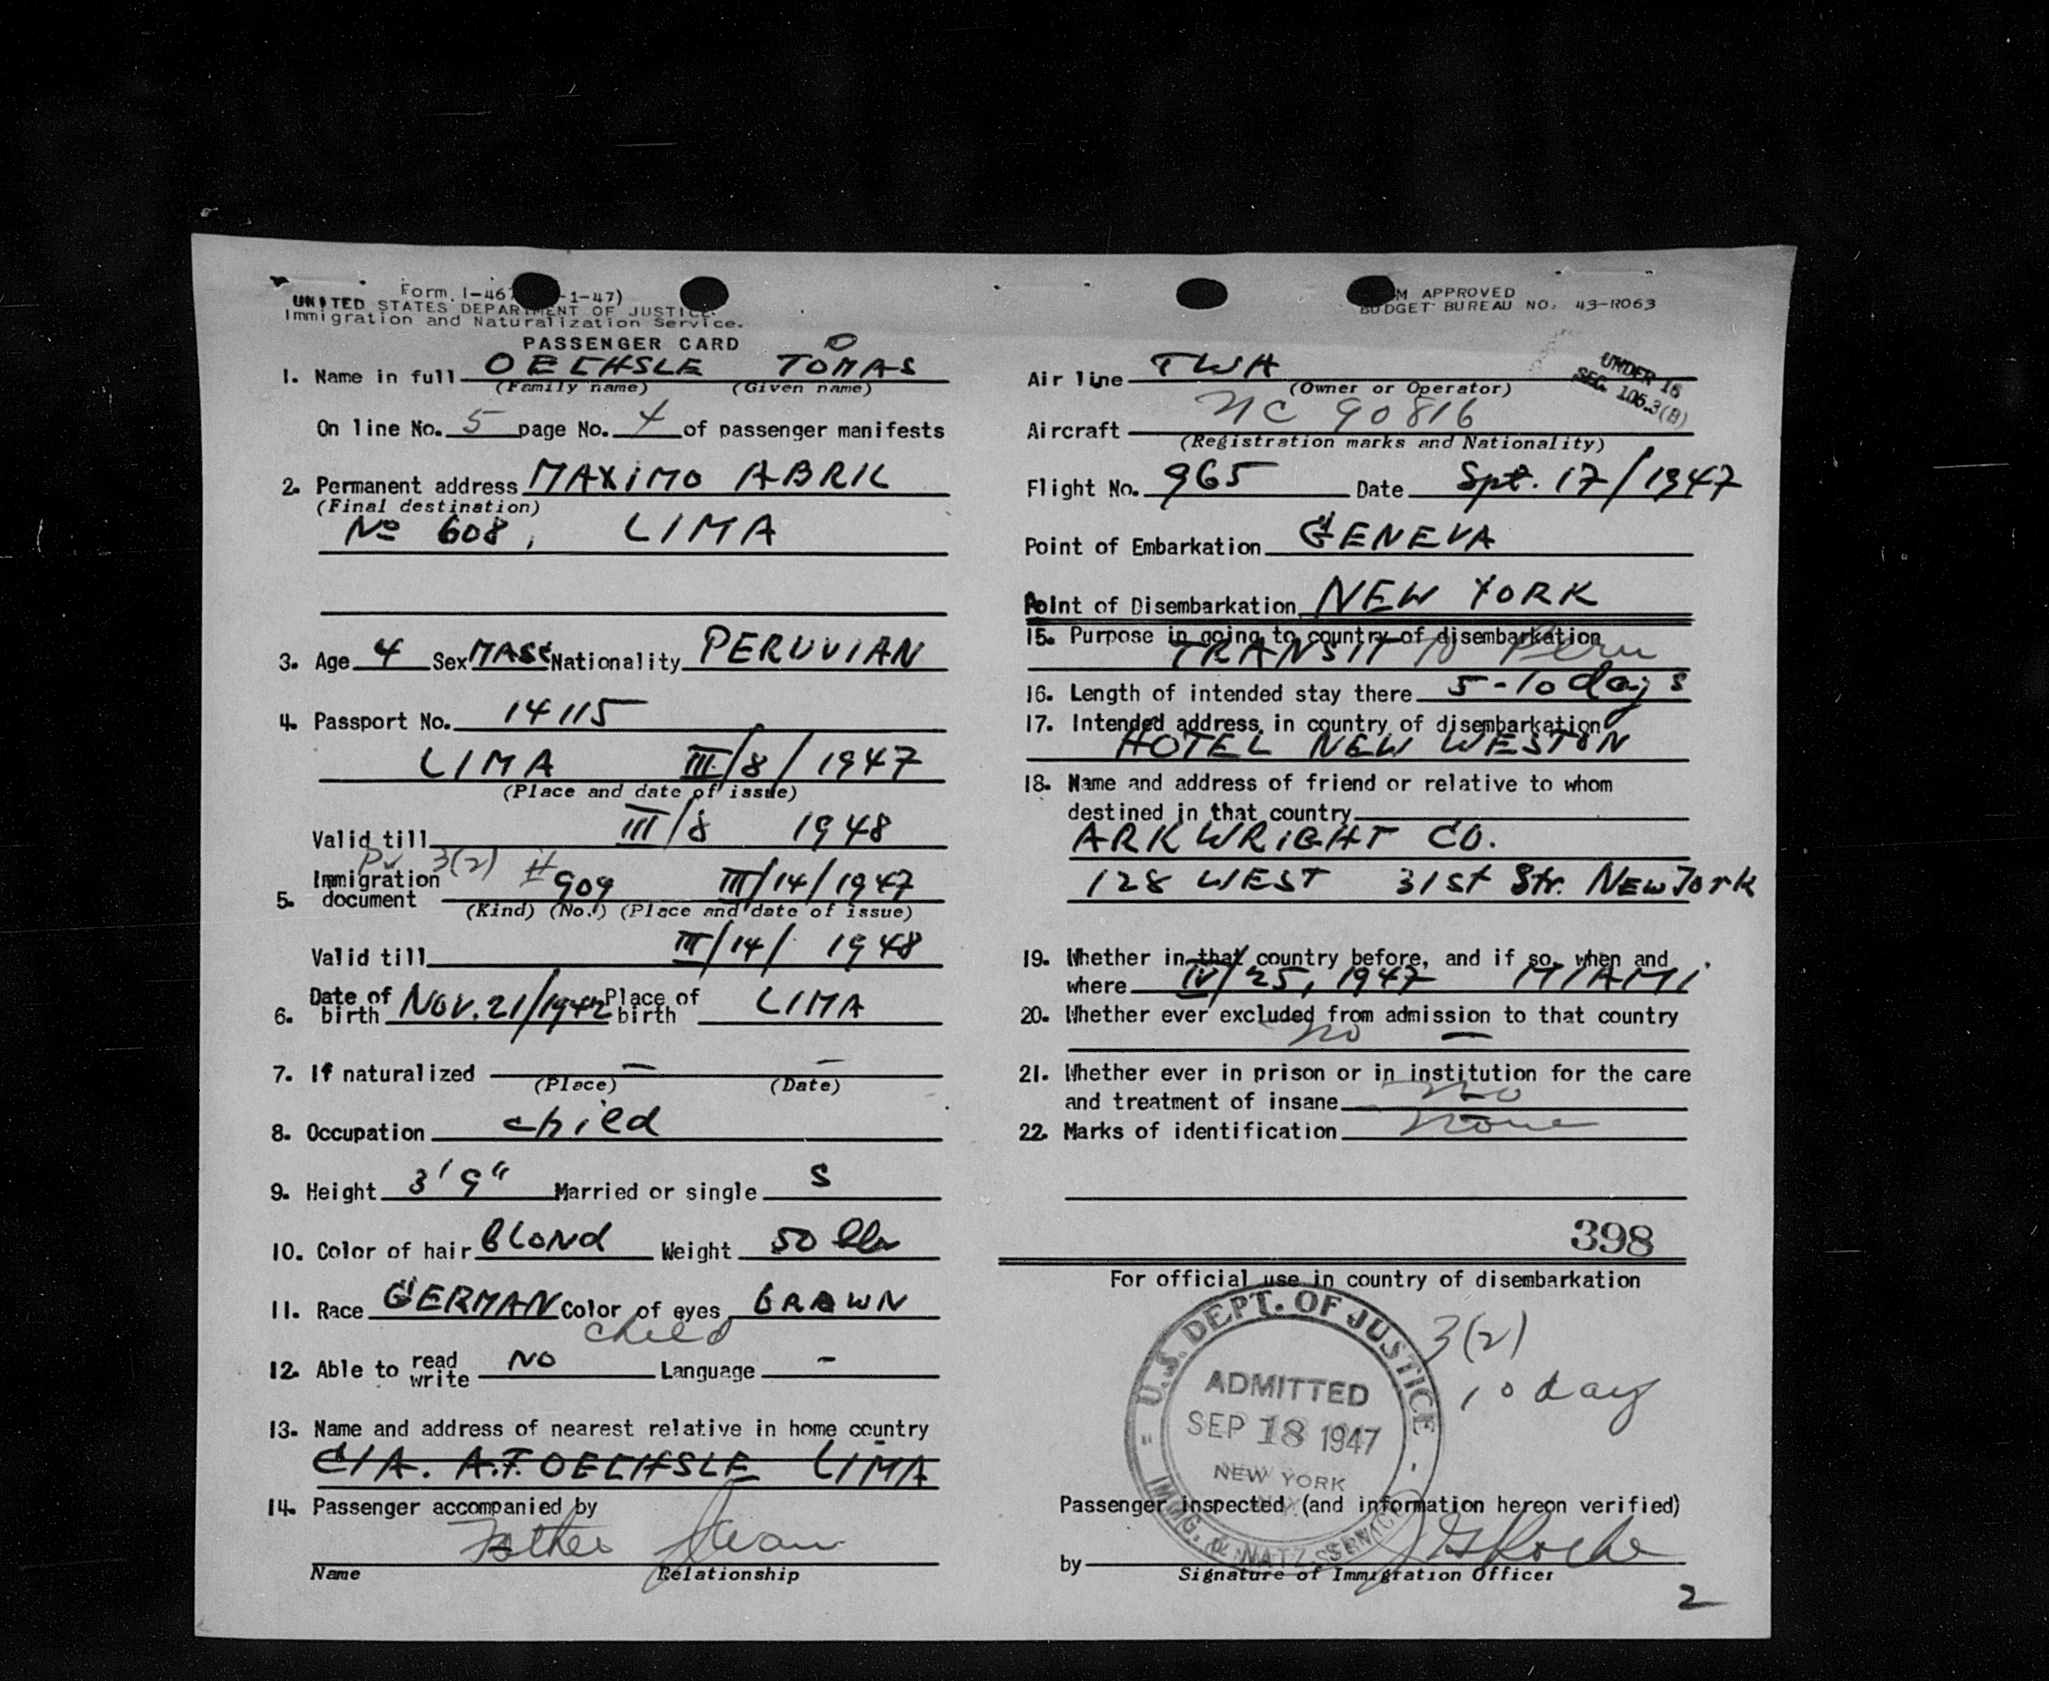 Form I-46 -1-47)
UNITED STATES DEPARTMENT OF JUSTICE
Immigration and Naturalization Service.
PASSENGER CARD
1. Name in full OECHSLE TOMAS
(Family name) (Given name)
On line No. 5 page No. 4 of passenger manifests
2. Permanent address MAXIMO ABRIL
(Final destination)
No 608, LIMA
3. Age 4 Sex MASC Nationality PERUVIAN
4. Passport No. 14115
LIMA III/8/1947
(Place and date of issue)
Valid till III/8 1948
PV 3(2)
5. Immigration document #909 III/14/1947
(Kind) (No.) (Place and date of issue)
Valid till III/14/ 1948
6. Date of birth NOV. 21/1942 Place of birth LIMA
7. If naturalized — —
(Place) (Date)
8. Occupation child
9. Height 3'9" Married or single S
10. Color of hair BLOND Weight 50 lbs
11. Race GERMAN Color of eyes BRAWN
child
12. Able to read write NO Language -
13. Name and address of nearest relative in home country
CIA. A.F. OECHSLE LIMA
14. Passenger accompanied by
Father Juan
Name Relationship
FORM APPROVED
BUDGET BUREAU NO. 43-R063
UNDER 16
SEC. 106.3(B)
Air line TWA
(Owner or Operator)
Aircraft NC 90816
(Registration marks and Nationality)
Flight No. 965 Date Spt. 17/1947
Point of Embarkation GENEVA
Point of Disembarkation NEW YORK
15. Purpose in going to country of disembarkation
TRANSIT to Peru
16. Length of intended stay there 5-10 days
17. Intended address in country of disembarkation
HOTEL NEW WESTON
18. Name and address of friend or relative to whom
destined in that country
ARKWRIGHT CO.
128 WEST 31st Str. NEW York
19. Whether in that country before, and if so, when and
where IV/25, 1947 MIAMI
20. Whether ever excluded from admission to that country
no —
21. Whether ever in prison or in institution for the care
and treatment of insane no
22. Marks of identification none
398
For official use in country of disembarkation
U.S. DEPT. OF JUSTICE
ADMITTED
SEP 18 1947
NEW YORK
N.Y.
IMMG. & NATZ. SERVICE
3(2)
10 day
Passenger inspected (and information hereon verified)
by
Signature of Immigration Officer
2